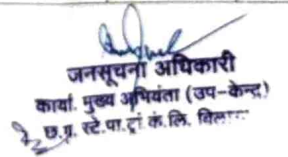 जनसूचना अधिकारी
कार्या. मुख्य अभियंता (उप-केन्द्र)
छ.ग. स्टे.पा.ट्रां. कं.लि.